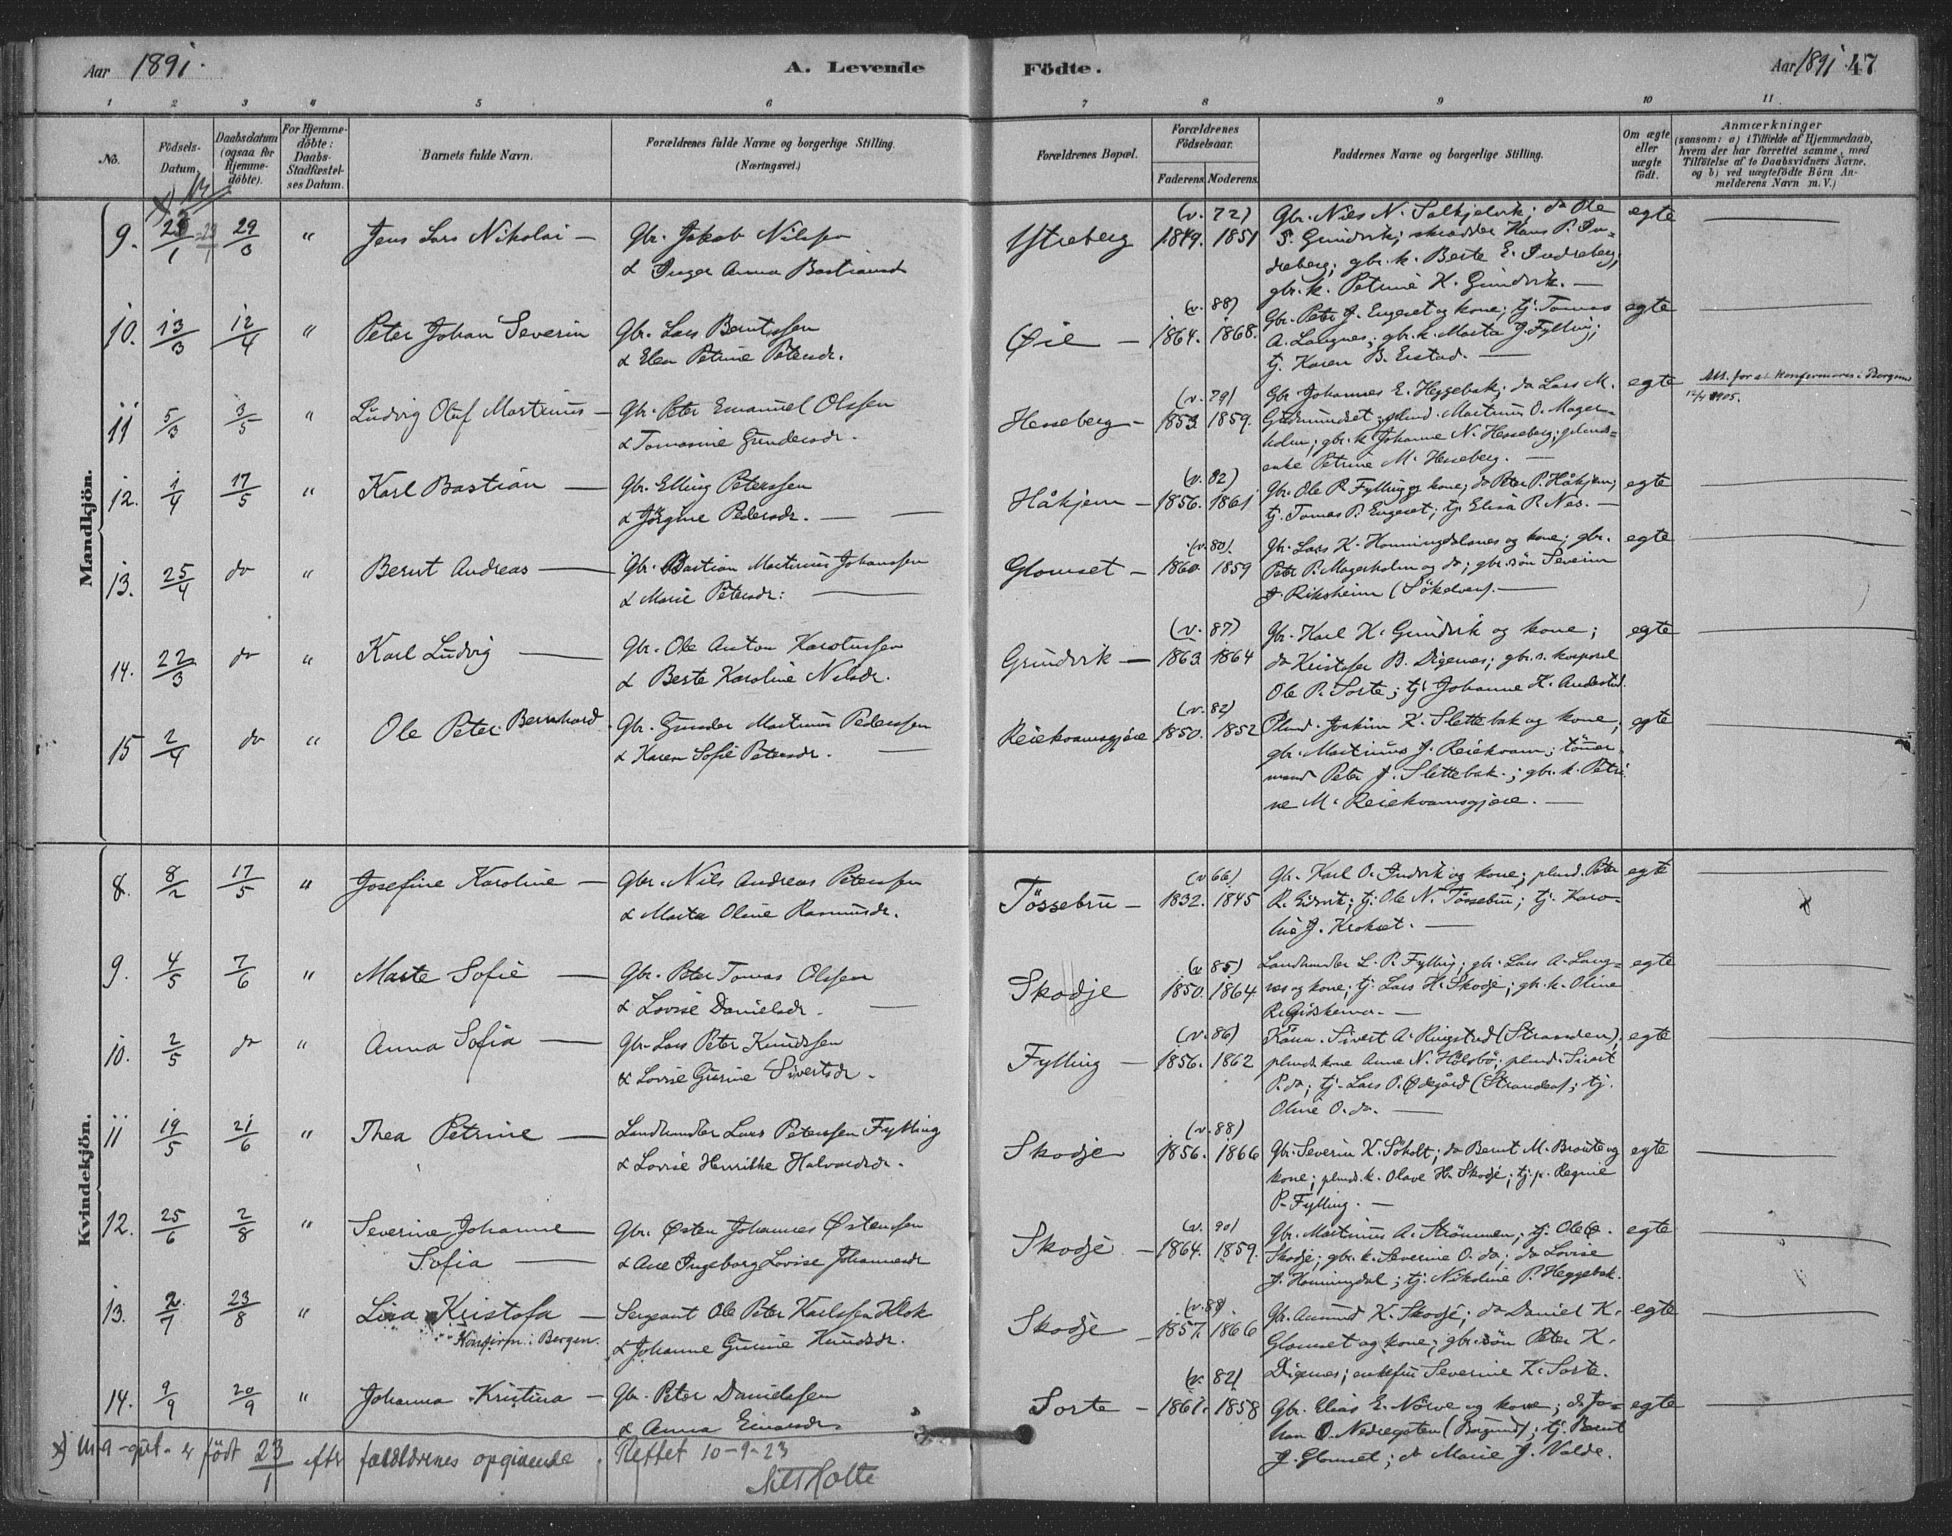 Aar 1891.
A. Levende
Födte.
Aar 1891. 47
1 2 3 4 5 6 7 8 9 10 11
No.
Födsels-Datum.
Daabsdatum (ogsaa for Hjemme-döbte).
For Hjemme-döbte: Daabs-Stadfæstel-ses Datum.
Barnets fulde Navn.
Forældrenes fulde Navne og borgerlige Stilling. (Næringsvei.)
Forældrenes Bopæl.
Forældrenes Födselsaar.
Faderens. Moderens.
Faddernes Navne og borgerlige Stilling.
Om ægte eller uægte födt.
Anmærkninger
(saasom: a) i Tilfælde af Hjemmedaab,
hvem der har forrettet samme, med
Tilföielse af to Daabsvidners Navne,
og b) ved uægtefödte Börn An-
melderens Navn m. V.)
Mandkjön.
9. 23/1 29/3 " Jens Lars Nikolai — Gbr. Jakob Nilssen
& Inger Anna Bastiansd
Ystreberg (v. 72) 1849. 1851
Gbr. Nils N. Solkjelvik; do Ole
S. Grindvik; skrædder Hans P. In-
dreberg; gbr. k. Berte E. Indreberg;
gbr. k. Petrine K. Grindvik. —
egte
10. 13/3 12/4 " Peter Johan Severin Gbr. Lars Berntssen
& Elen Petrine Petersdr.
Øie — (v. 88) 1864. 1868.
Gbr. Peter J. Engeset og kone; tj. Tomas
A. Langnes; gbr. k. Marta J. Fylling;
tj. Karen B. Erstad. —
egte
11 5/3 3/5 " Ludvig Oluf Martinus — Gbr. Peter Emanuel Olssen
& Tomasine Gundersdr.
Hesseberg — (v. 79) 1853. 1859.
Gbr. Johannes E. Heggebak; do Lars M.
Gudmundset; plmd. Martinus O. Mager-
holm; gbr. k. Johanne N. Hesseberg; plmds-
enke Petrine M. Hesseberg. —
egte
Att. for at konfirmeres i Borgund
1905.
12. 1/4 17/5 " Karl Bastian — Gbr. Elling Peterssen
& Jörgine Pedersdr. —
Håkjem — (v. 82) 1856. 1861
Gbr. Ole P. Fylling og kone; do Peter P. Håkjem;
tj. Tomas P. Engeset; tj. Elisa P. Nes. —
egte
13. 25/4 do " Bernt Andreas — Gbr. Bastian Martinus Johanssen
& Marie Petersdr: —
Glomset — (v. 80). 1860. 1859
Gbr. Lars K. Honningdalsnes og kone; gbr.
Peter P. Magerholm og do; gbr. sön Severin
J. Riksheim (Sökelven). —
egte
14. 22/3 do " Karl Ludvig — Gbr. Ole Anton Karolussen
& Berte Karoline Nilsdr.
Grindvik — (v. 87) 1863. 1864
Gbr. Karl K. Grindvik og kone;
do Kristofer B. Digernes; gbr. s. korporal
Ole P. Sorte; tj. Johanne K. Andestad.
egte
15 2/4 do " Ole Peter Bernhard Gbr. Gunder Martinus Pederssen
& Karen Sofie Petersdr. —
Reiekvamsgjære (v. 82) 1850. 1852
Plmd. Joakim K. Slettebak og kone;
gbr. Martinus J. Reiekvam; tömmer-
mand Peter J. Slettebak.; gbr. k. Petri-
ne M. Reiekvamsgjære. —
egte
Kvindekjön.
8. 8/2 17/5 " Josefine Karoline — Gbr. Nils Andreas Peterssen
& Marta Oline Rasmusdr.
Tössebru — (v. 66) 1832. 1845
Gbr. Karl O. Indvik og kone; plmd. Peter
R. Eidvik; tj. Ole N. Tössebru; tj. Karo-
line J. Krokset. —
egte
9. 4/5 7/6 " Marte Sofie — Gbr. Peter Tomas Olssen
& Lovise Danielsdr. —
Skodje (v. 85) 1850. 1864
Landhandler L. P. Fylling; gbr. Lars A. Lang-
nes og kone; tj. Lars H. Skodje; gbr. k. Oline
R. Gjöskemo. —
egte
10. 2/5 do " Anna Sofia — Gbr. Lars Peter Knudssen
& Lovise Gurine Sivertsdr.
Fylling — (v. 86) 1856. 1862
Sivert A. Ringstad (Stranden);
plmds. kone Anne N. Holsbö; plmd. Sivert
P. do; tj. Lars O. Ødegård (Stranden); tj.
Oline O. do. —
egte
11 19/5 21/6 " Thea Petrine — Landhandler Lars Peterssen Fylling
& Lovise Henrikke Halvorsdr.
Skodje (v. 88) 1856. 1866
Gbr. Severin K. Soholt; do Bernt M. Brauteog
kone; plmds. k. Olave H. Skodje; tj. p. Regine
P. Fylling. —
egte
12. 25/6 2/8 " Severine Johanne Sofia — Gbr. Østen Johannes Østenssen
& Ane Ingeborg Lovise Johannesdr
Skodje — (v. 90) 1864. 1859.
Gbr. Martinus A. Strömmen; tj. Ole Ø.
Skodje; gbr. k. Severine O. do; do Lovise
J. Honningdal; tj. Nikoline P. Heggebak.
egte
13. 2/7 23/8 " Lina Kristofa — Sergeant Ole Peter Karlssen Klok
Konfirm. i Bergen.
& Johanne Gurine Knudsdr.
Skodje — (v. 88). 1857. 1866
Gbr. Amund K. Skodje; do Daniel K.
Glomset og kone; gbr. sön Peter K.
Digernes; enkefru Severine K. Sorte.
egte
14. 9/9 20/9 " Johanna Kristina — Gbr. Peter Danielssen
& Anna Einarsdr
Sorte — (v. 82) 1861. 1858
Gbr. Elias E. Nörve og kone; do Jo-
han O. Nedregoten (Borgund); tj. Bernt
J. Glomset; do Marie J. Valde.
egte
x) nr 9 - gut - er födt 23/1 efter foreldrenes opgivende. Rettet 10-9-23
Nils Holte